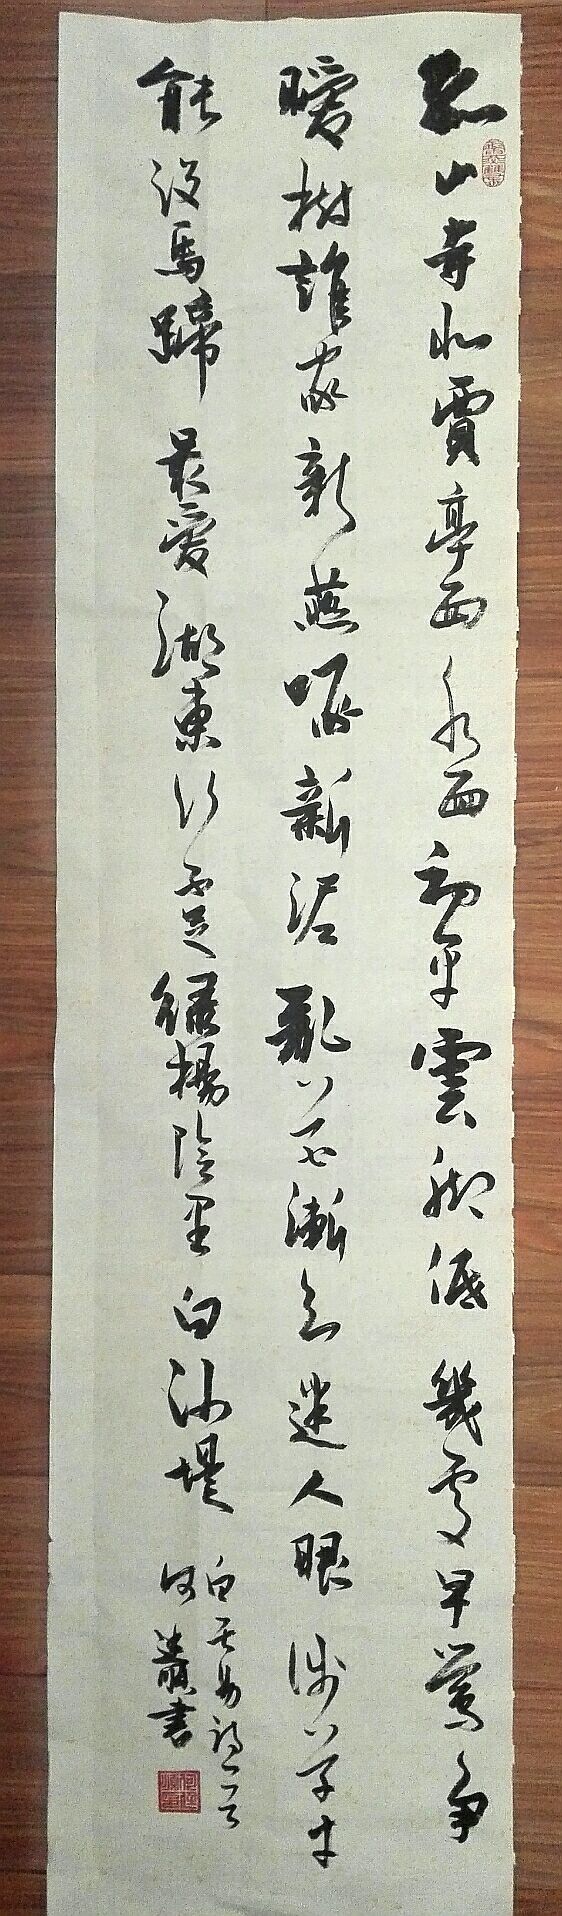 孤山寺北賈亭西水面初平雲腳低幾處早鶯爭
曖樹誰家新燕啄新泥亂花漸欲迷人眼淺草才
能没馬蹄最愛湖東行不足綠楊陰里白沙堤
白居易詩一首
何書